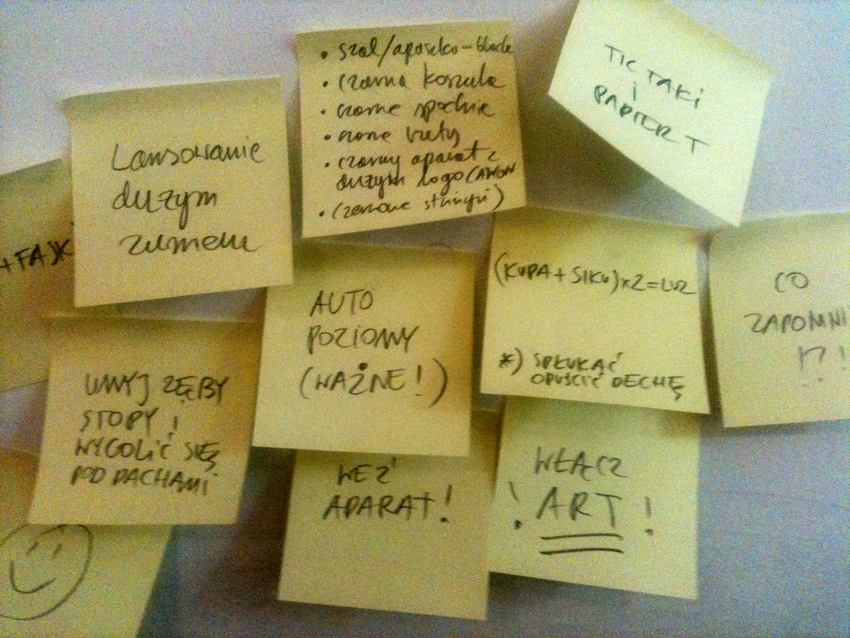 • szal/apaszka-black
• czarna koszula
• czarne spodnie
• czarne buty
• czarny aparat z
dużym logo CANON
• (czerwone stringi)
TIC TAKI
I
PAPIER T
Lansowanie
dużym
zumem
+ FAJK
AUTO
POZIOMY
(WAŻNE!)
(KUPA + SIKU)x2=LUZ
*) SPŁUKAĆ
OPUŚCIĆ DECHĘ
CO
ZAPOMNI
!?!
UMYJ ZĘBY
STOPY i
WYGOLIĆ SIĘ
POD PACHAMI
WEŹ
APARAT!
WŁĄCZ
! ART !